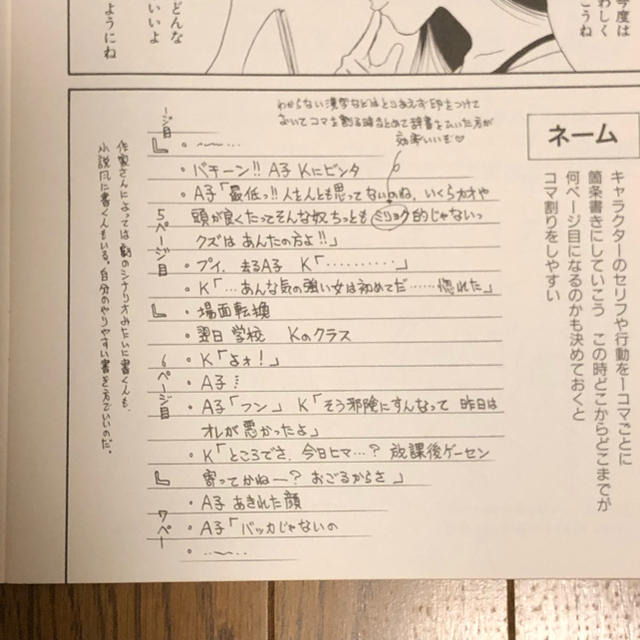 今度は
わしく
こうね
どんな
いいよ
ようにね
ネーム
キャラクターのセリフや行動を一コマごとに
箇条書きにしていこう この時どこからどこまでが
何ページ目になるのかも決めておくと
コマ割りをしやすい
わからない漢字などはとりあえず印をつけて
おいてコマを割る時まとめて辞書をひいた方が
効率いいも♡
ージ目
・〜〜…
・バチーン!! A子 Kにビンタ
・A子「最低っ!!人を人とも思ってないのね、いくらカオや
頭が良くたってそんな奴ちっともミリョク的じゃないっ
クズは あんたの方よ!!」
5ページ目
・プイ、去るA子 K「………」
・K「…あんな気の強い女は初めてだ……惚れた」
・場面転換
・翌日 学校 Kのクラス
・K「よォ!」
・A子…
6ページ目
・A子「フン」 K「そう邪険にすんなって 昨日は
オレが悪かったよ」
・K「ところでさ、今日ヒマ…? 放課後ゲーセン
寄ってかねー? おごるからさ」
・A子 あきれた顔
7ペー
・A子「バッカじゃないの
・…〜〜
作家さんによっては劇のシナリオみたいに書く人も、
小説風に書く人もいる。自分のやりやすい書き方でいいのだ。